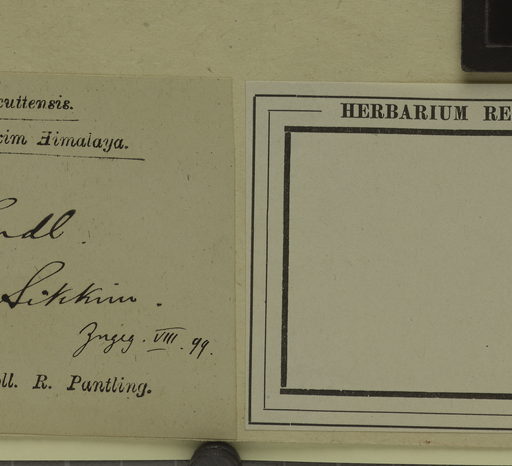 cuttensis.
kim Himalaya.
ndl.
Sikkim.
VIII. 99.
oll. R. Pantling.
HERBARIUM RE